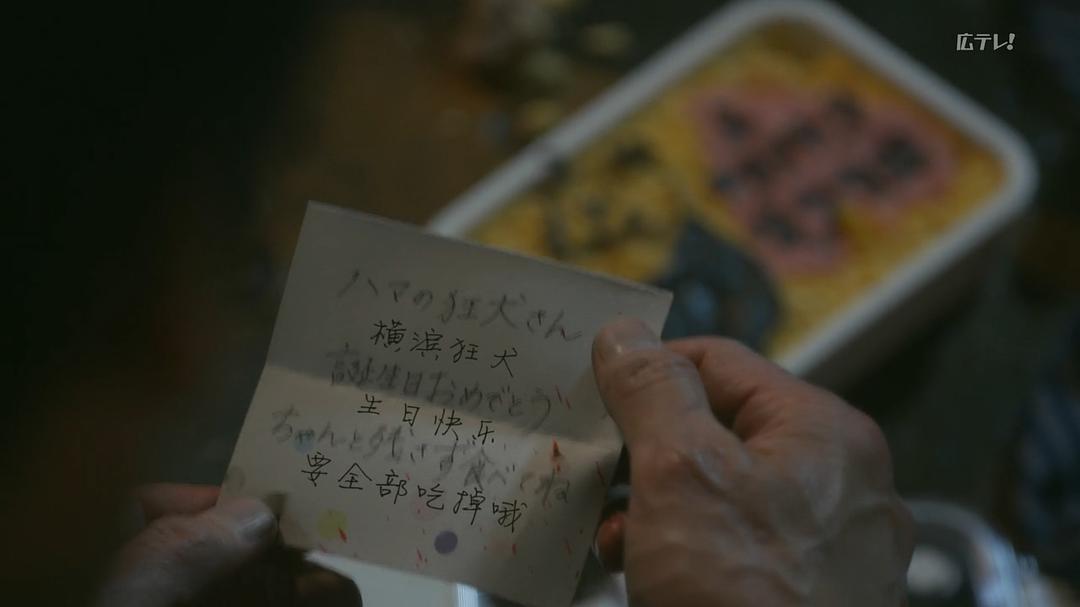 広テレ!
ハマの狂犬さん
横滨狂犬
誕生日おめでとう
生日快乐
ちゃんと残さず食べてね
要全部吃掉哦